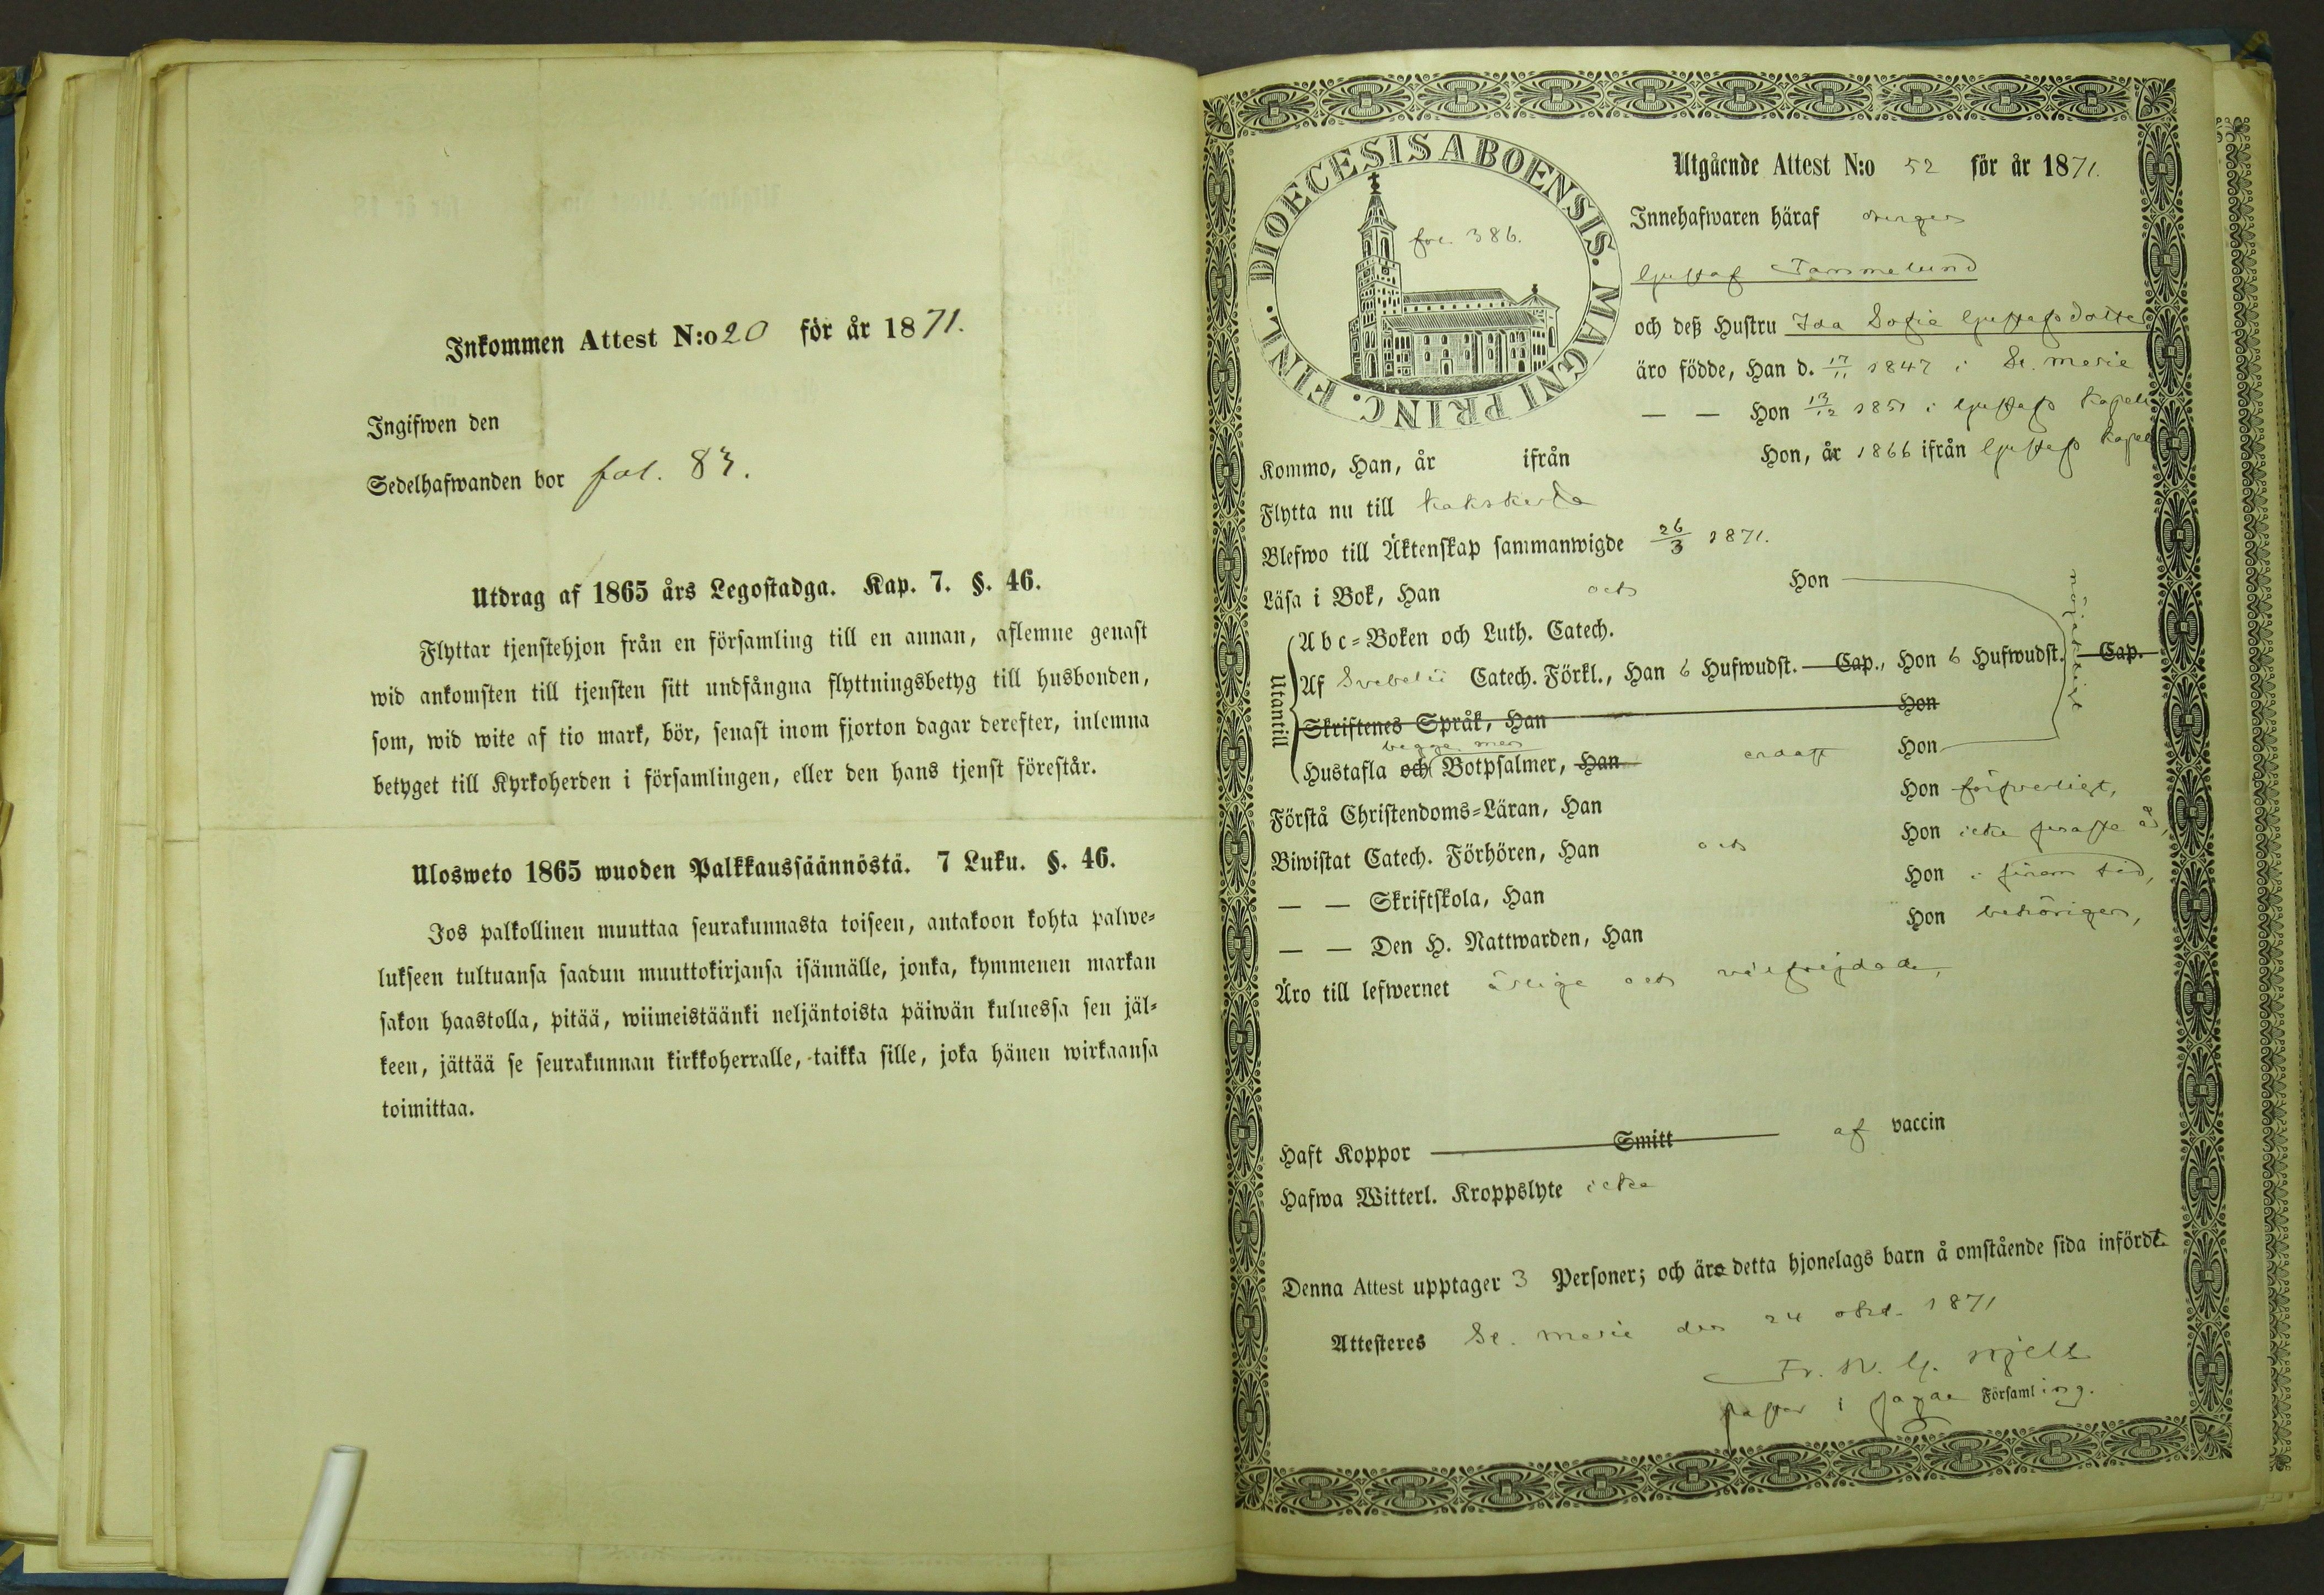 Inkommen Attest N:o 20 för år 1871.
Ingifwen den
Sedelhafwanden bor fol. 83.
Utdrag af 1865 års Legostadga. Kap. 7. §. 46.
Flyttar tjenstehjon från en församling till en annan, aflemne genast
wid ankomsten till tjensten sitt undfångna flyttningsbetyg till husbonden,
som, wid wite af tio mark, bör, senast inom fjorton dagar derefter, inlemna
betyget till Kyrkoherden i församlingen, eller den hans tjenst förestår.
Ulosweto 1865 wuoden Palkkaussäännöstä. 7 Luku. §. 46.
Jos palkollinen muuttaa seurakunnasta toiseen, antakoon kohta palwe-
lukseen tultuansa saadun muuttokirjansa isännälle, jonka, kymmenen markan
sakon haastolla, pitää, wiimeistäänki neljäntoista päiwän kuluessa sen jäl-
keen, jättää se seurakunnan kirkkoherralle, taikka sille, joka hänen wirkaansa
toimittaa.
DIOECESIS ABOENSIS. MAGNI PRINC. FINL.
fol. 386.
Utgårnde Attest N:o 52 för år 1871.
Innehafwaren häraf drengen
Gustaf Tammelund
och deß Hustru Ida Sofia Gustafsdotter
äro födde, Han d. 17/11 1847 i St. Marie
— — Hon 13/12 1851 i Gustafs Kapell
Kommo, Han, år ifrån Hon, år 1866 ifrån Gustafs Kapell
Flytta nu till Kakskerta
Blefwo till Äktenskap sammanwigde 26/3 1871.
Läsa i Bok, Han och Hon
nöjaktigt
Utantill
Abc-Boken och Luth. Catech.
Af Svebelii Catech. Förkl., Han 6 Hufwudst. Cap., Hon 6 Hufwudst. Cap.
Skriftenes Språk, Han Hon
begge men
Hustafla och Botpsalmer, Han endast Hon
Förstå Christendoms-Läran, Han Hon försvarligt,
Biwistat Catech. Förhören, Han och Hon icke senaste år,
— — Skriftskola, Han Hon i sinom tid,
— — Den H. Nattwarden, Han Hon behörigen,
Äro till lefwernet ärlige och välfrejdade,
Haft Koppor Smitt af vaccin
Hafwa Witterl. Kroppslyte icke
Denna Attest upptager 3 Personer; och äro detta hjonelags barn å omstående sida infördt.
Attesteres St. Marie den 24 okt. 1871
Pastor i Församling.